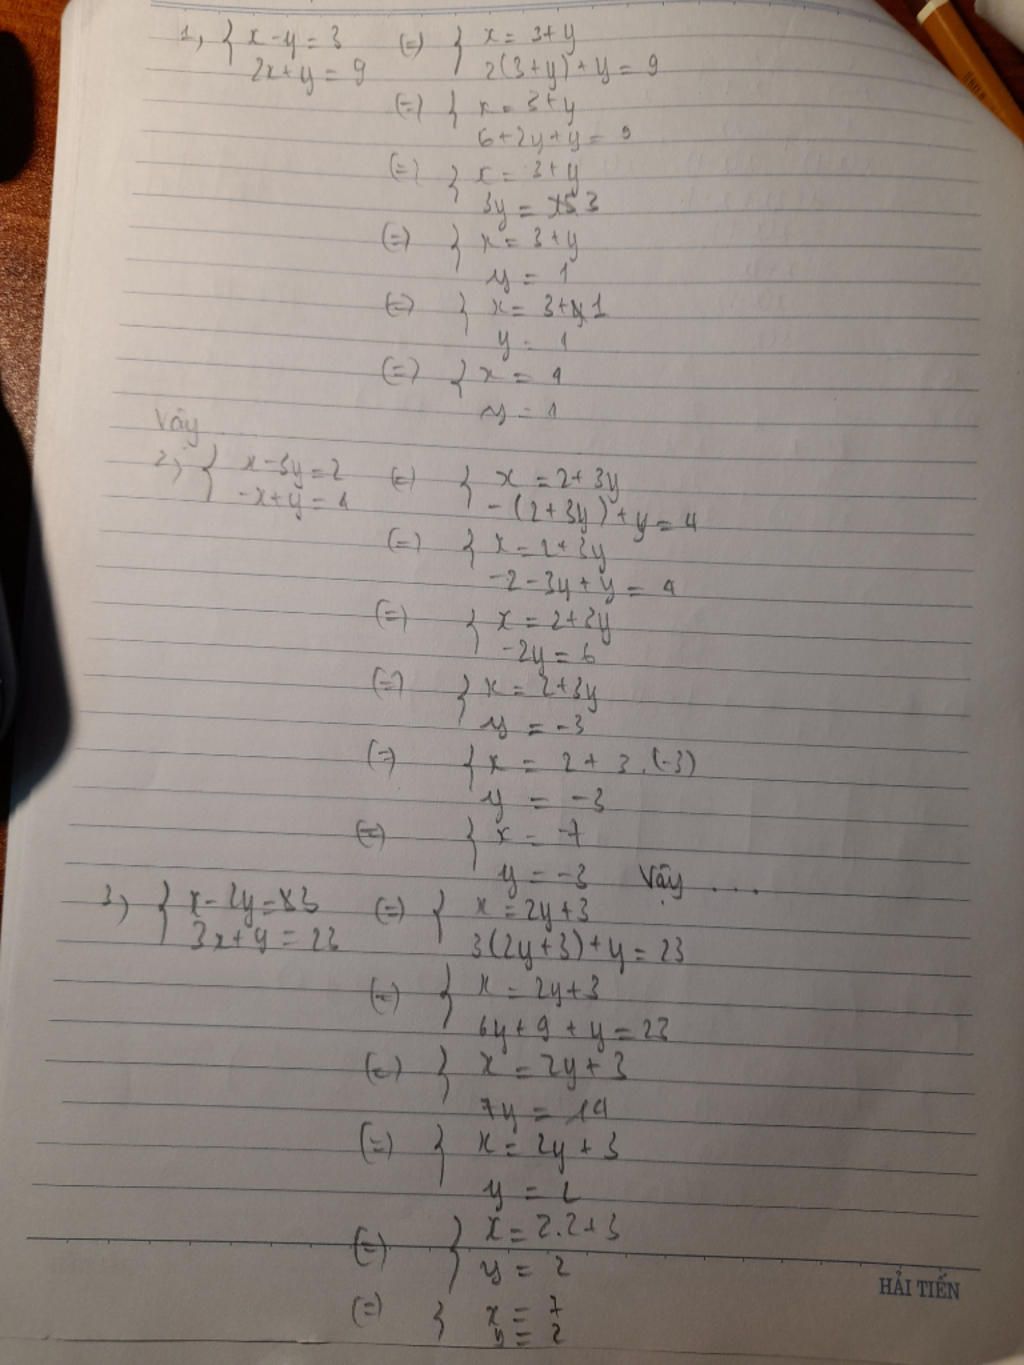 1, { x - y = 3 (=) { x = 3 + y
2x + y = 9 2(3+y) + y = 9
(=) { x = 3 + y
6 + 2y + y = 9
(=) { x = 3 + y
3y = 3
(=) { x = 3 + y
y = 1
(=) { x = 3 + 1
y = 1
(=) { x = 4
y = 1
Vây
2, { x - 3y = 2 (=) { x = 2 + 3y
-x + y = 4 -(2 + 3y) + y = 4
(=) { x = 2 + 3y
-2 - 3y + y = 4
(=) { x = 2 + 3y
-2y = 6
(=) { x = 2 + 3y
y = -3
(=) { x = 2 + 3.(-3)
y = -3
(=) { x = -7
y = -3 Vậy ....
3, { x - 2y = 3 (=) { x = 2y + 3
3x + y = 23 3(2y + 3) + y = 23
(=) { x = 2y + 3
6y + 9 + y = 23
(=) { x = 2y + 3
7y = 14
(=) { x = 2y + 3
y = 2
(=) { x = 2.2 + 3
y = 2
HẢI TIẾN
(=) { x = 7
y = 2